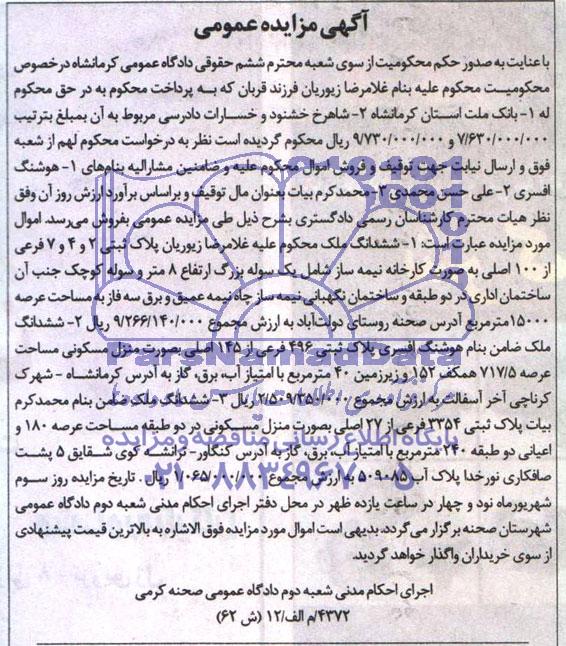 آگهی مزایده عمومی
باعنایت به صدور حکم محکومیت از سوی شعبه محترم ششم حقوقی دادگاه عمومی کرمانشاه درخصوص
محکومیت محکوم علیه بنام غلامرضا زیوریان فرزند قربان که به پرداخت محکوم به در حق محکوم
له ۱- بانک ملت استان کرمانشاه ۲- شاهرخ خشنود و خسارات دادرسی مربوط به آن بمبلغ بترتیب
۷/۶۳۰/۰۰۰/۰۰۰ و ۹/۷۳۰/۰۰۰/۰۰۰ ریال محکوم گردیده است نظر به درخواست محکوم لهم از شعبه
فوق و ارسال نیابت جهت توقیف و فروش اموال محکوم علیه و ضامنین مشارالیه بنام‌های ۱- هوشنگ
افسری ۲- علی حسن محمدی ۳- محمدکرم بیات بعنوان مال توقیف و براساس برآورد ارزش روز آن وفق
نظر هیات محترم کارشناسان رسمی دادگستری بشرح ذیل طی مزایده عمومی بفروش می‌رسد. اموال
مورد مزایده عبارت است: ۱- ششدانگ ملک محکوم علیه غلامرضا زیوریان پلاک ثبتی ۲ و ۴ و ۷ فرعی
از ۱۰۰ اصلی به صورت کارخانه نیمه ساز شامل یک سوله بزرگ ارتفاع ۸ متر و سوله کوچک جنب آن
ساختمان اداری در دو طبقه و ساختمان نگهبانی نیمه ساز چاه نیمه عمیق و برق سه فاز به مساحت عرصه
۱۵۰۰۰ مترمربع آدرس صحنه روستای دولت‌آباد به ارزش مجموع ۹/۲۶۶/۱۴۰/۰۰۰ ریال ۲- ششدانگ
ملک ضامن بنام هوشنگ افسری پلاک ثبتی ۴۹۶ فرعی از ۱۴۵ اصلی بصورت منزل مسکونی مساحت
عرصه ۷۱۷/۵ همکف ۱۵۲ و زیرزمین ۴۰ مترمربع با امتیاز آب، برق، گاز به آدرس کرمانشاه - شهرک
کرناچی آخر آسفالت به ارزش مجموع ریال ۳- ششدانگ ملک ضامن بنام محمدکرم
بیات پلاک ثبتی ۳۳۵۴ فرعی از ۲۷ اصلی بصورت منزل مسکونی در دو طبقه مساحت عرصه ۱۸۰ و
اعیانی دو طبقه ۲۴۰ مترمربع با امتیاز آب، برق، گاز به آدرس کنگاور- کوی شقایق ۵ پشت
صافکاری نورخدا پلاک آب ۵۰۹۰۸۵ به ارزش مجموع ۱/۰۶۵/۰۰۰/۰۰۰ ریال. تاریخ مزایده روز سوم
شهریورماه نود و چهار در ساعت یازده ظهر در محل دفتر اجرای احکام مدنی شعبه دوم دادگاه عمومی
شهرستان صحنه برگزار می‌گردد. بدیهی است اموال مورد مزایده فوق الاشاره به بالاترین قیمت پیشنهادی
از سوی خریداران واگذار خواهد گردید.
اجرای احکام مدنی شعبه دوم دادگاه عمومی صحنه کرمی
۴۳۷۲/م الف/۱۲ (ش ۶۲)
ParsNamadData
پایگاه اطلاع رسانی مناقصه و مزایده
۰۲۱-۸۸۳۴۹۶۷۰-۵